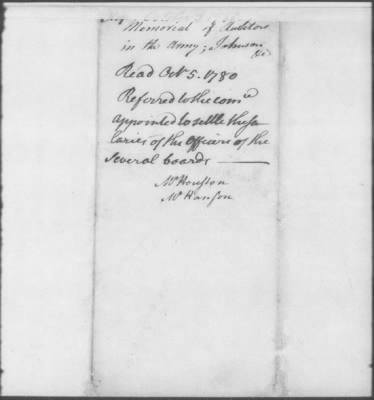 Memorial of Auditors
in the Army, Johnson
&c
Read Octr 5. 1780
Referred to the comee
appointed to settle the sa
laries of the Officers of the
several boards —
Mr Houston
Mr Hanson